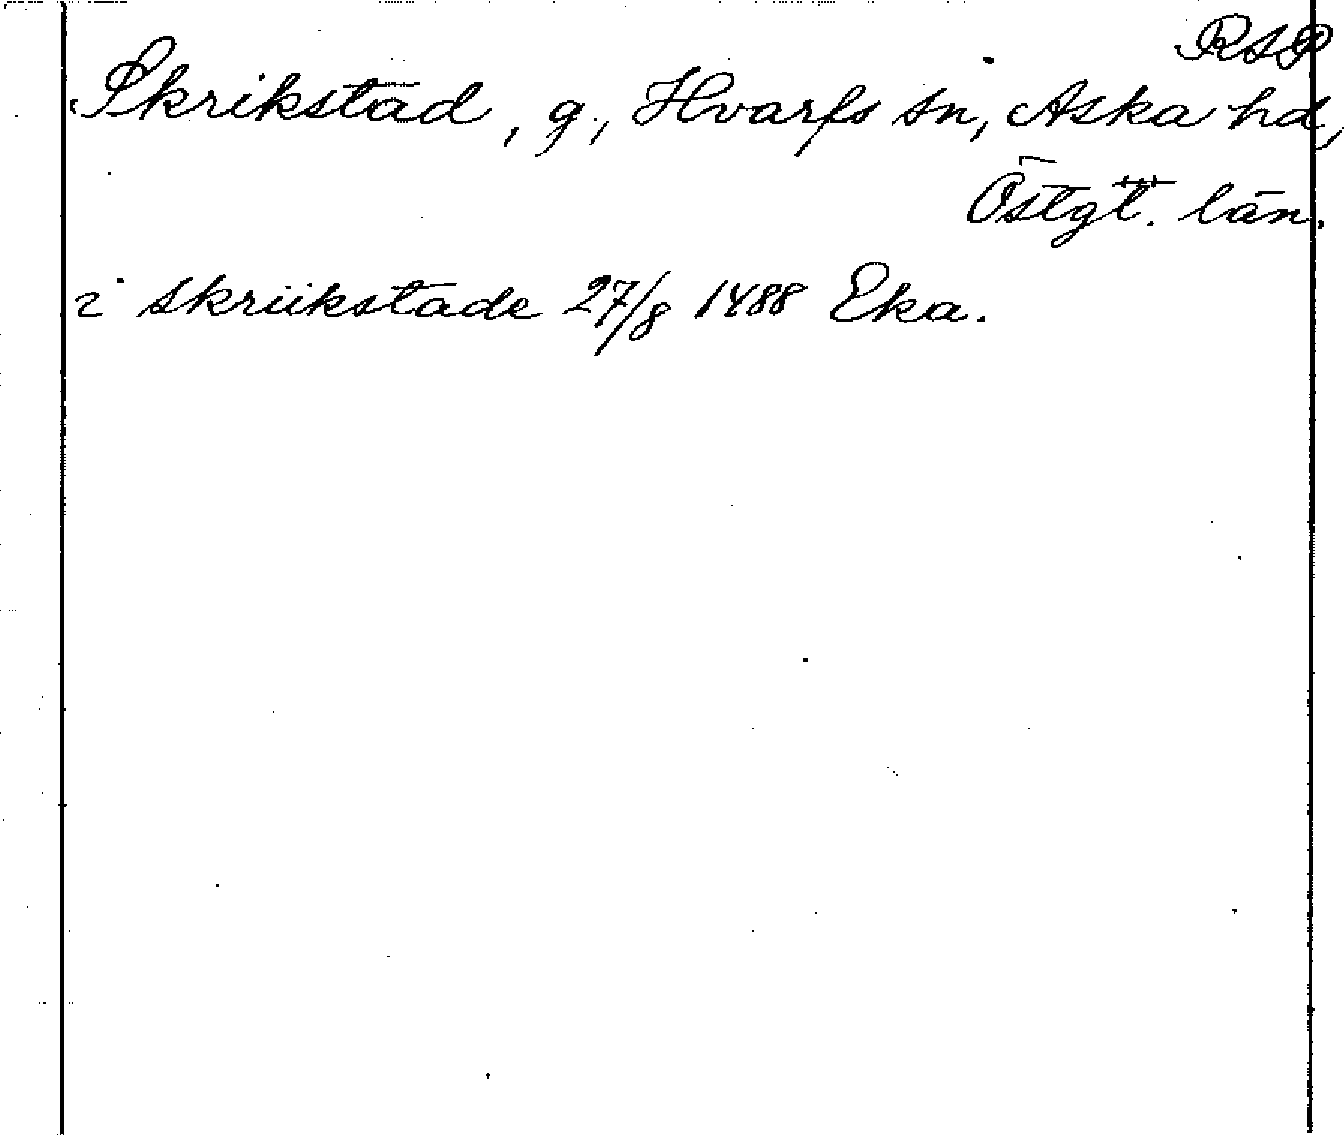 RSP
Skrikstad, g., Hvarfs sn, Aska hd,
Östgt. län.
i skriikstade 27/8 1488 Eka.